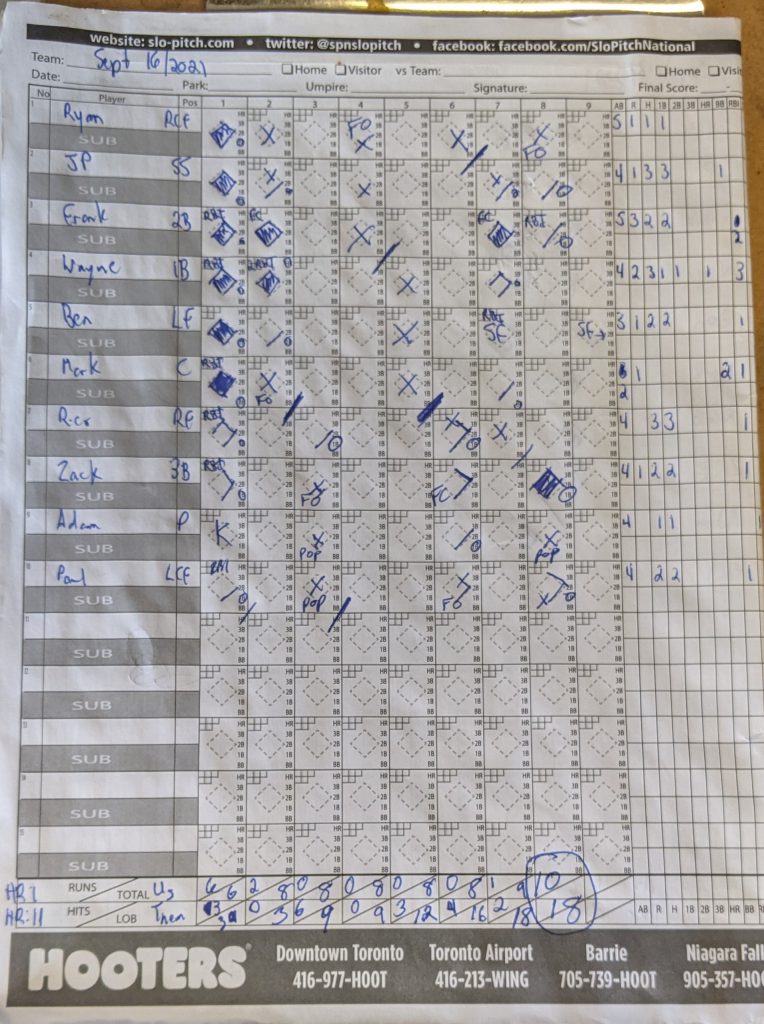 website: slo-pitch.com • twitter: @spnslopitch • facebook: facebook.com/SloPitchNational
Team: Sept 16/2021 Home Visitor vs Team: Home
Date: Park: Umpire: Signature: Final Score:
No Player Pos 1 2 3 4 5 6 7 8 9 AB R H 1B 2B 3B HR BB RBI
1 Ryan RCF FO FO 5 1 1 1
SUB
2 JP SS 4 1 3 3 1
SUB
3 Frank 2B RBI FC FC RBI 5 3 2 2 2
SUB
4 Wayne 1B RBI 2RBI 4 2 3 1 1 1 3
SUB
5 Ben LF RBI SF SF 3 1 2 2 1
SUB
Mark C RBI FO 2 1 2 1
SUB
Rico RF RBI 4 3 3 1
SUB
8 Zack 3B RBI FO FC 4 1 2 2 1
SUB
9 Adam P K POP POP 4 1 1
SUB
10 Paul LCF RBI POP FO 4 2 2 1
SUB
11
SUB
12
SUB
13
SUB
SUB
15
SUB
HR: 1 RUNS TOTAL Us 6 6 2 8 0 8 0 8 0 8 0 8 1 9 10
HR: 11 HITS LOB Them 3 0 3 6 9 0 9 3 12 4 16 2 18 18 AB R H 1B 2B 3B HR BB
HOOTERS
Downtown Toronto
416-977-HOOT
Toronto Airport
416-213-WING
Barrie
705-739-HOOT
Niagara Fall
905-357-HO